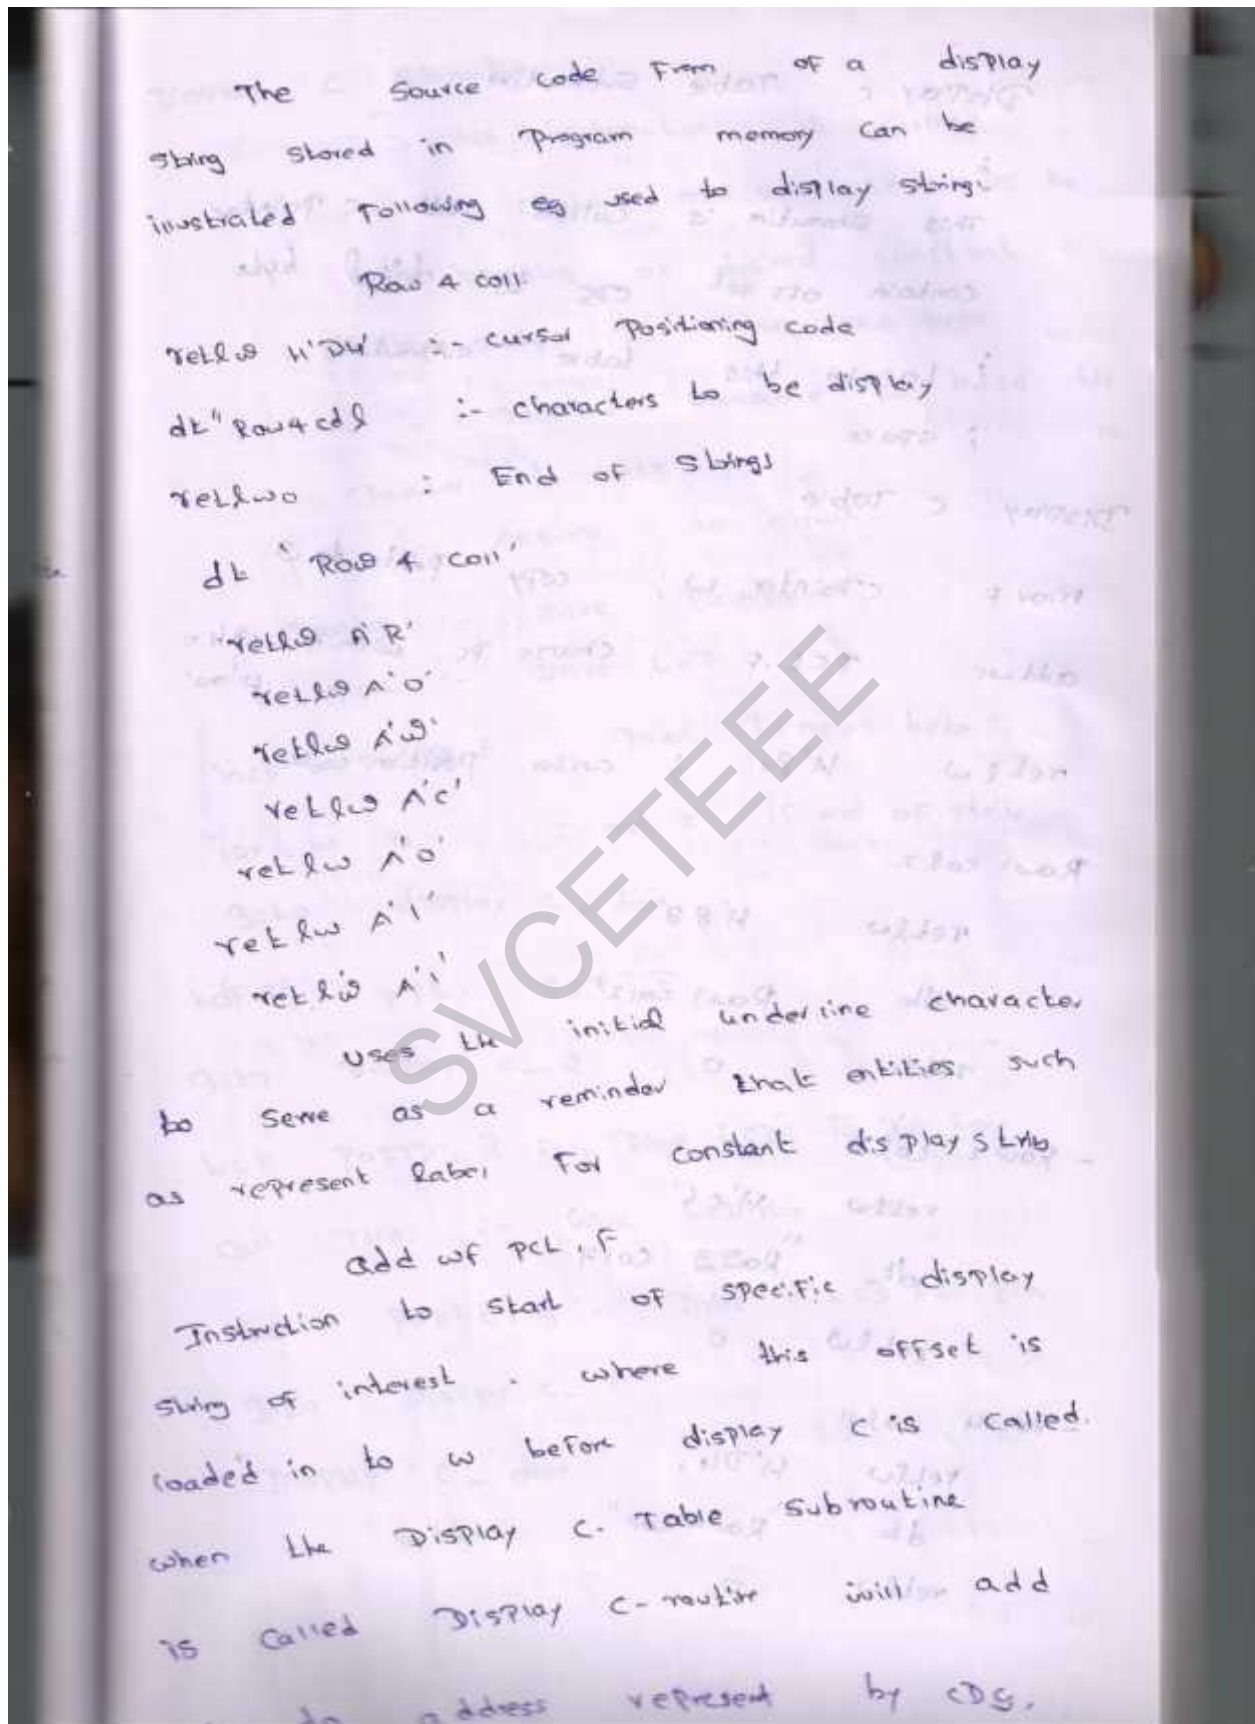 The Source code From of a display
string stored in Program memory can be
illustrated Following eg used to display string:
Row 4 coll
retlw H'D4' :- cursor Positioning code
dt "Row4 col :- characters to be display
retlw 0 : End of Strings
dt "Row 4 coll'
retlw A'R'
retlw A'O'
retlw A'W'
retlw A'C'
retlw A'O'
retlw A'l'
retlw A'l'
SVCETEEE
uses the initial underline character
to serve as a reminder that entities such
as represent label For constant display
add wf PCL, F
Instruction to start of specific display
string of interest. where this offset is
loaded in to w before display C is called.
when the Display C. Table subroutine
is called Display C-routine will add
address represent by CDS.